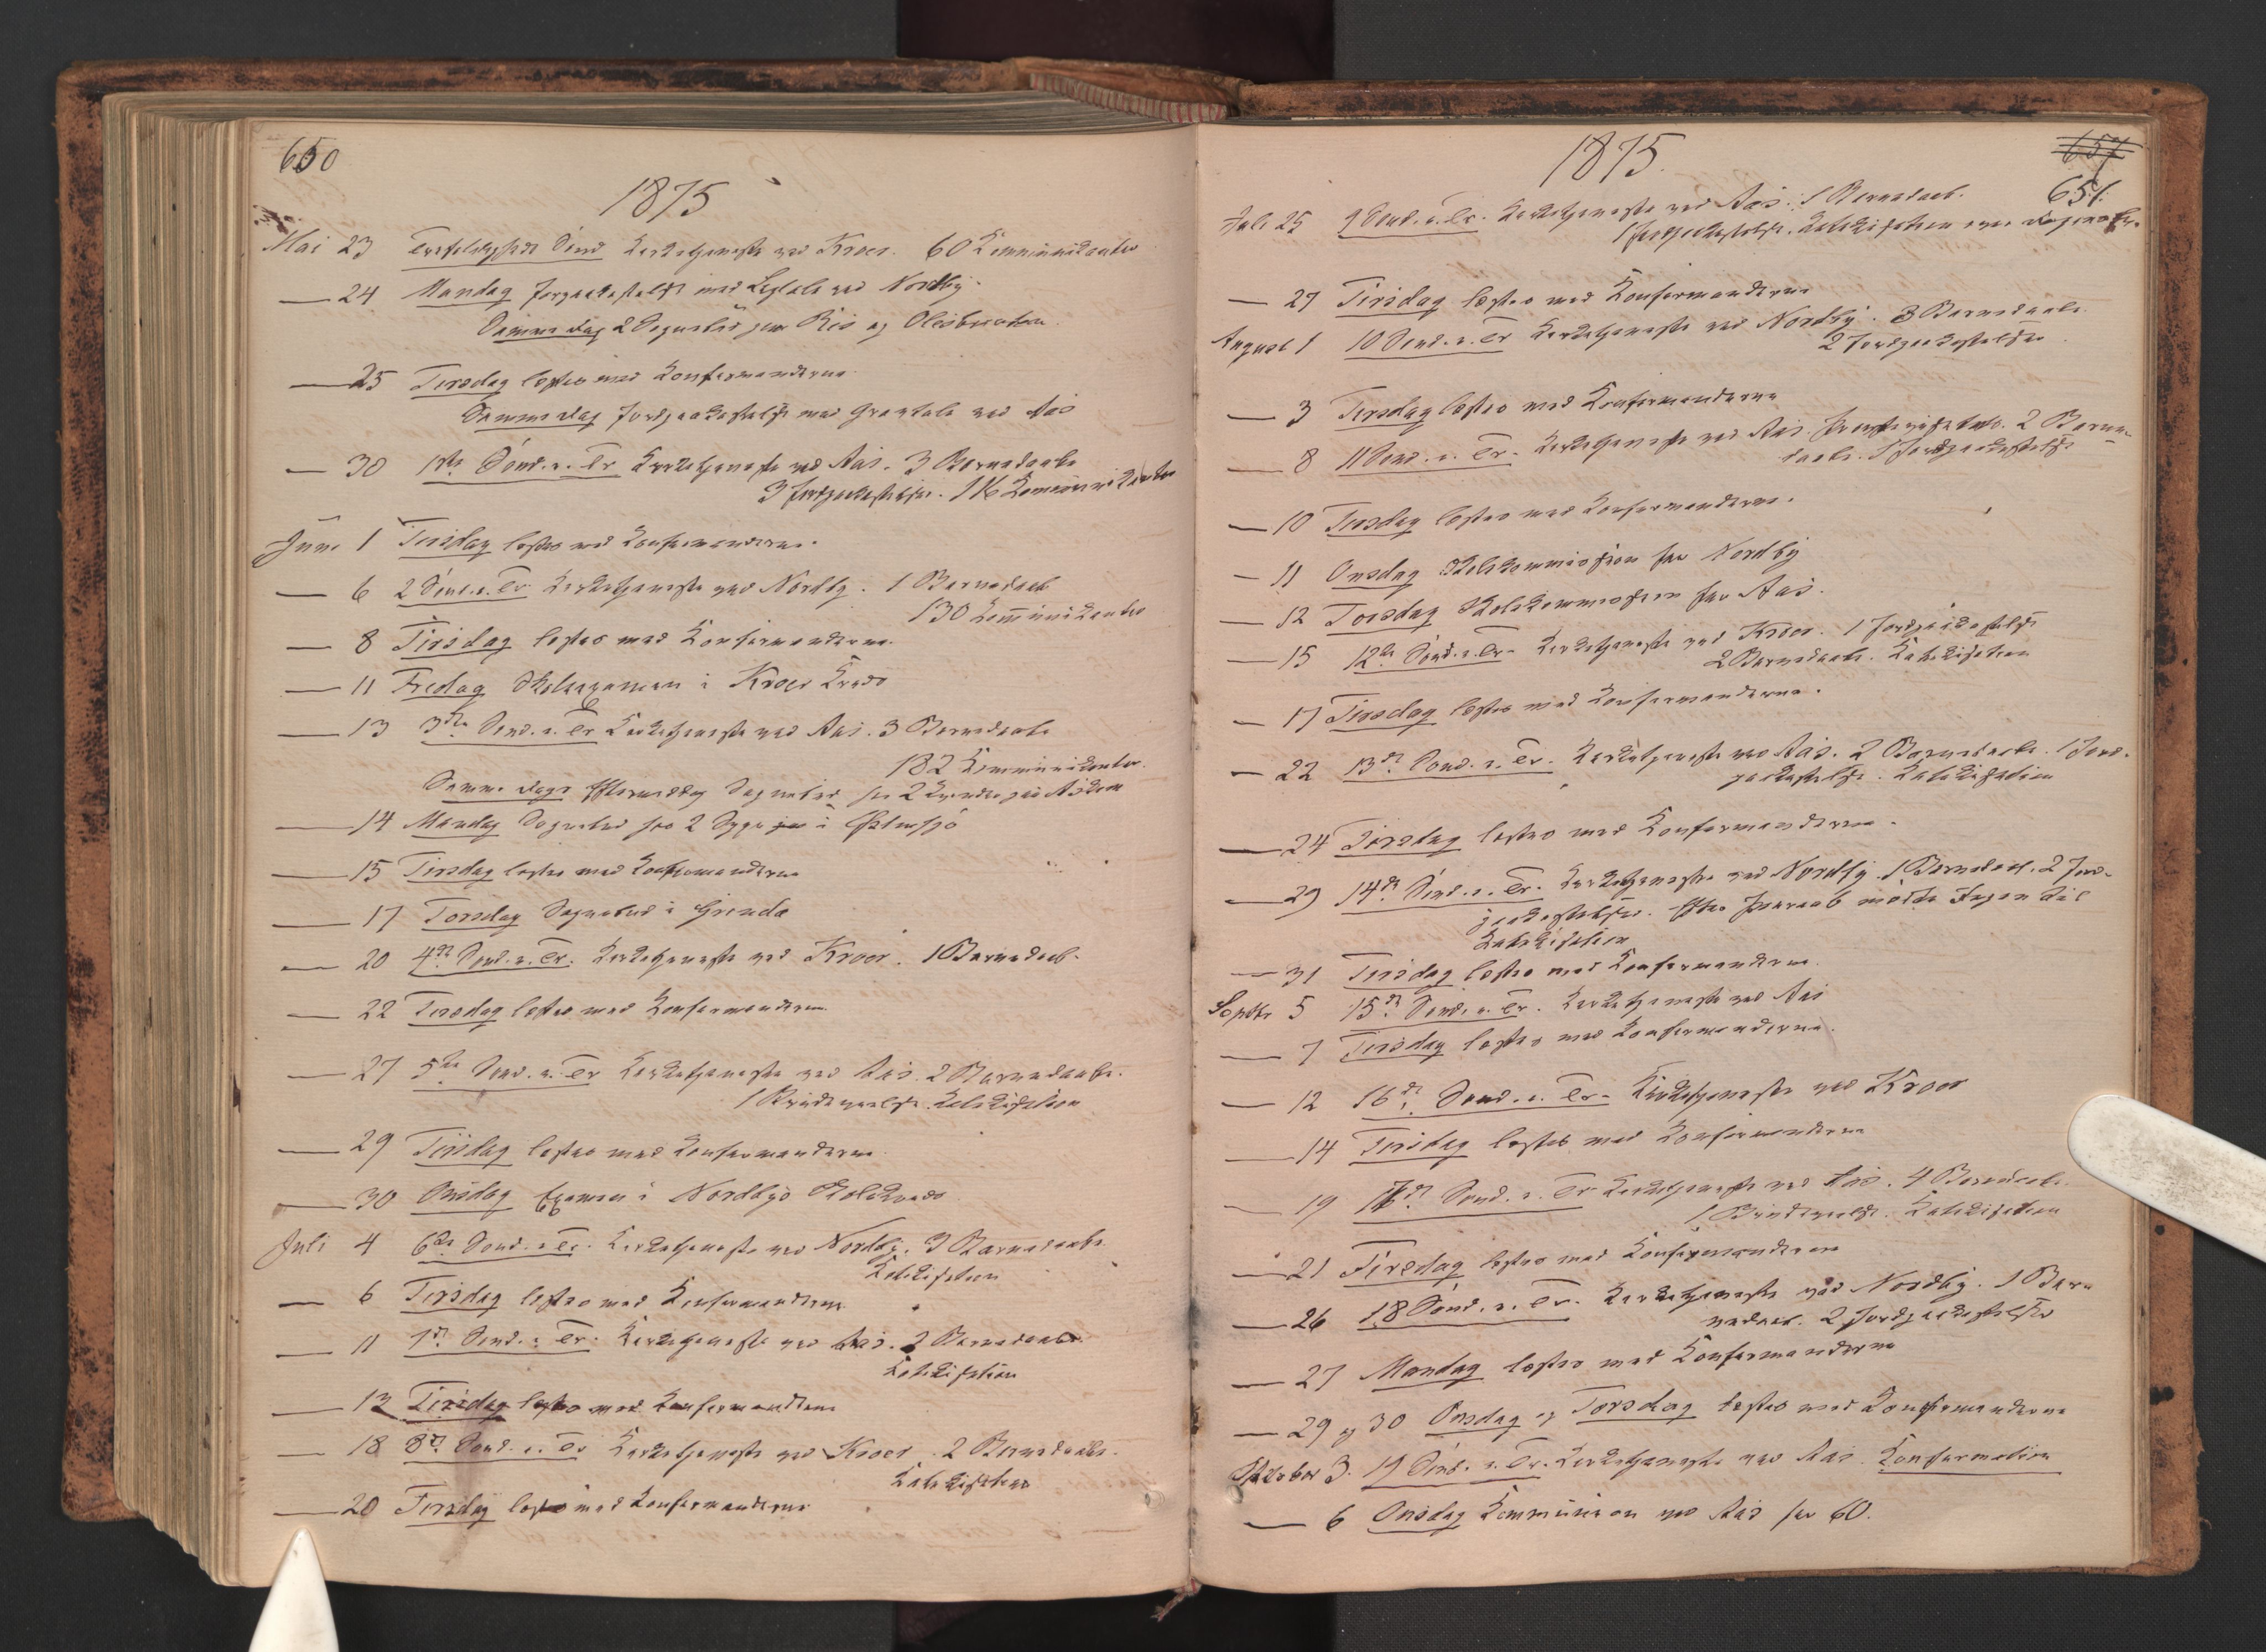 650
1875
Mai 23 Trefoldigheds Sønd Kirketjeneste ved Kroer. 60 Kommunikanter
— 24 Mandag Jordpaakastelse med Ligtale ved Nordby.
Samme Dag 2 Sognebud paa Riis og
— 25 Tirsdag læstes med Konfirmanderne.
Samme Dag Jordpaakastelse med Gravtale ved Aas
— 30 1ste Sønd. e. Tr Kirketjeneste ved Aas. 3 Barnedaab
3 Jordpaakastelser. 116 Kommunikanter
Juni 1 Tirsdag læstes med Konfirmanderne.
— 6 2 Sønd. e. Tr Kirketjeneste ved Nordby. 1 Barnedaab
130 Kommunikanter
— 8 Tirsdag læstes med Konfirmanderne.
— 11 Fredag Skolexamen i Kroer Kreds
— 13 3die Sønd. e. Tr Kirketjeneste ved Aas. 3 Barnedaab
182 Kommunikanter.
Samme Dags Eftermiddag Sognebud for 2 Kvinder paa
— 14 Mandag Sognebud for 2 Syge i Østensjø
— 15 Tirsdag læstes med Konfirmanderne
— 17 Torsdag Sognebud i Grinda
— 20 4de Sønd. e. Tr. Kirketjeneste ved Kroer. 1 Barnedaab.
— 22 Tirsdag læstes med Konfirmanderne.
— 27 5te Sønd. e. Tr Kirketjeneste ved Aas. 2 Barnedaab.
1 Brudevielse. Katekisation
— 29 Tirsdag læstes med Konfirmanderne.
— 30 Onsdag Examen i Nordbys Skolekreds
Juli 4 6te Sønd. e Tr. Kirketjeneste ved Nordby. 3 Barnedaab
Katekisation
— 6 Tirsdag læstes med Konfirmanderne
— 11 7de Sønd. e Tr. Kirketjeneste ved Aas. 2 Barnedaab.
Katekisation
— 13 Tirsdag læstes med Konfirmanderne
— 18 8de Sønd. e. Tr Kirketjeneste ved Kroer. 2 Barnedaab.
Katekisation
— 20 Tirsdag læstes med Konfirmanderne
1875.
657
651.
Juli 25 9 Sønd. e. Tr. Kirketjeneste ved Aas. 1 Barnedaab.
1 Jordpaakastelse. Katekisation
— 27 Tirsdag læstes med Konfirmanderne
August 1 10 Sønd. e. Tr Kirketjeneste ved Nordby. 3 Barnedaab.
2 Jordpaakastelser.
— 3 Tirsdag læstes med Konfirmanderne
— 8 11 Sønd. e. Tr. Kirketjeneste ved Aas. 2 Barne-
daab. 1 Jordpaakastelse
— 10 Tirsdag læstes med Konfirmanderne.
— 11 Onsdag Skolekommission for Nordby
— 12 Torsdag Skolekommission for Aas.
— 15 12te Sønd. e. Tr. Kirketjeneste ved Kroer. 1 Jordpaakastelse
2 Barnedaab. Katekisation
— 17 Tirsdag læstes med Konfirmanderne.
— 22 13de Sønd. e. Tr. Kirketjeneste ved Aas. 2 Barnedaab. 1 Jord-
paakastelse. Katekisation
— 24 Tirsdag læstes med Konfirmanderne.
— 29 14de Sønd. e. Tr. Kirketjeneste ved Nordby. 1 Barnedaab. 2 Jord-
paakastelser. Efter mødte Ingen til
Katekisation
— 31 Tirsdag læstes med Konfirmanderne.
Septbr 5 15de Sønd. e. Tr. Kirketjeneste ved Aas
— 7 Tirsdag læstes med Konfirmanderne.
— 12 16de Sønd. e. Tr. Kirketjeneste ved Kroer
— 14 Tirsdag læstes med Konfirmanderne
— 19 17de Sønd. e. Tr Kirketjeneste ved Aas. 4 Barnedaab.
1 Brudevielse. Katekisation
— 21 Tirsdag læstes med Konfirmanderne
— 26 18 Sønd. e. Tr. Kirketjeneste ved Nordby. 1 Bar-
nedaab. 2 Jordpaakastelser
— 27 Mandag læstes med Konfirmanderne
— 29 og 30 Onsdag og Torsdag læstes med Konfirmanderne
Oktober 3. 19 Sønd. e. Tr. Kirketjeneste ved Aas. Konfirmation
— 6 Onsdag Kommunion ved Aas for 60.